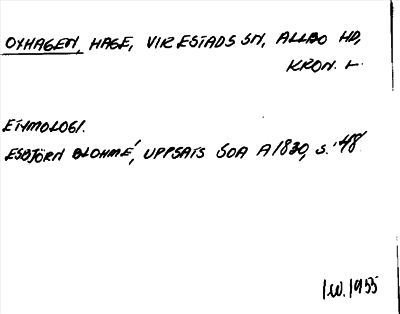 OXHAGEN, HAGE, VIRESTADS SN, ALLBO HD,
KRON. L.
ETYMOLOGI.
ESBJÖRN BLOHMÉ, UPPSATS SOA A 1830, S. 48
I.W. 1955